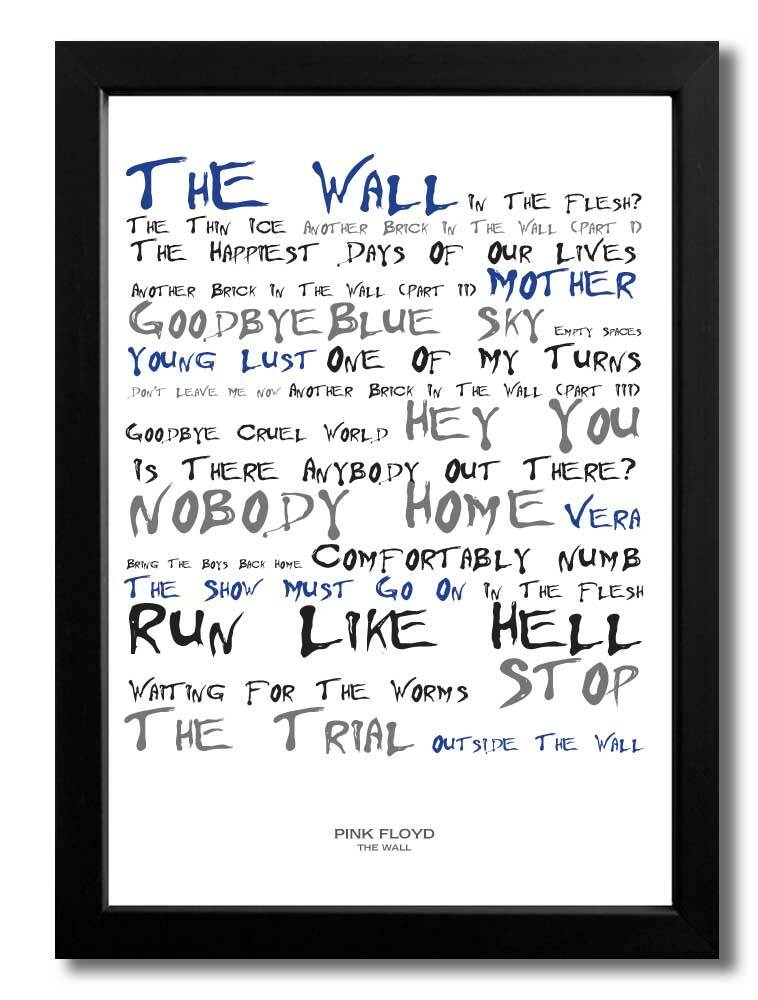 THE WALL IN THE FLESH?
THE THIN ICE ANOTHER BRICK IN THE WALL (PART I)
THE HAPPIEST DAYS OF OUR LIVES
ANOTHER BRICK IN THE WALL (PART II) MOTHER
GOODBYE BLUE SKY EMPTY SPACES
YOUNG LUST ONE OF MY TURNS
DON'T LEAVE ME NOW ANOTHER BRICK IN THE WALL (PART III)
GOODBYE CRUEL WORLD HEY YOU
IS THERE ANYBODY OUT THERE?
NOBODY HOME VERA
BRING THE BOYS BACK HOME COMFORTABLY NUMB
THE SHOW MUST GO ON IN THE FLESH
RUN LIKE HELL
WAITING FOR THE WORMS STOP
THE TRIAL OUTSIDE THE WALL
PINK FLOYD
THE WALL